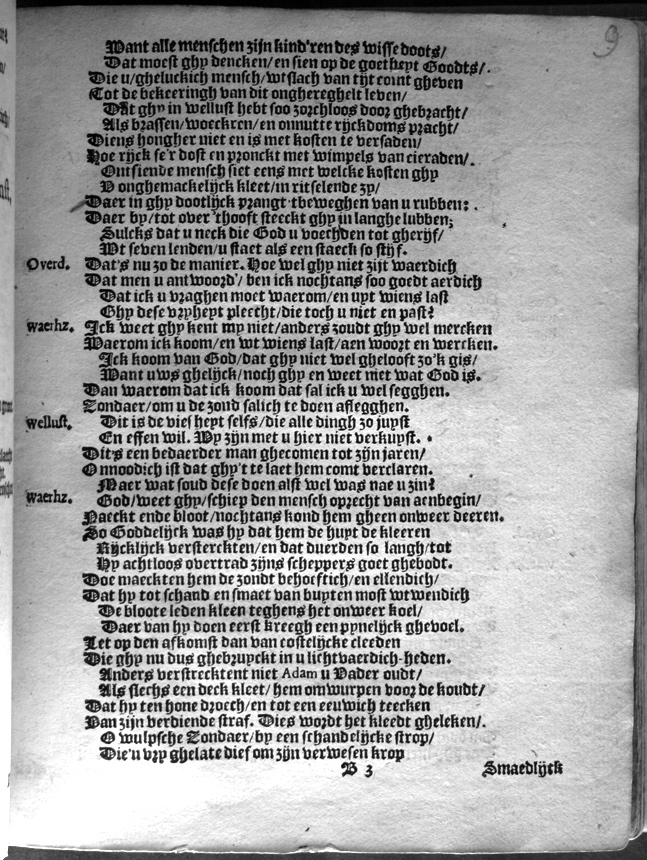 9
Want alle menschen zijn kind'ren des wisse doots/
Dat moest ghy dencken/en sien op de goetheyt Goodts/.
Die u/gheluckich mensch/wtslach van tijt comt gheven
Tot de bekeeringh van dit onghereghelt leven/
Dat ghy in wellust hebt soo zorchloos door ghebracht/
Als brassen/woeckren/en onnutte rijckdoms pracht/
Diens hongher niet en is met kosten te versaden/
Hoe rijck se'r dost en pronckt met wimpels van cieraden/.
Ontsiende mensch siet eens met welcke kosten ghy
V onghemackelijck kleet/in ritselende zy/
Daer in ghy dootlijck prangt 'tbeweghen van u rubben:.
Daer by/tot over 'thooft steeckt ghy in langhe lubben;
Sulcks dat u neck die God u voechden tot gherijf/
Wt seven lenden/u staet als een staeck so stijf.
Overd. Dat's nu zo de manier. Hoe wel ghy niet zijt waerdich
Dat men u antwoord'/ ben ick nochtans soo goedt aerdich
Dat ick u vraghen moet waerom/en uyt wiens last
Ghy dese vryheyt pleecht/die toch u niet en past?
waerhz. Ick weet ghy kent my niet/anders zoudt ghy wel mercken
Waerom ick koom/en wt wiens last/aen woort en wercken.
Ick koom van God/dat ghy niet wel ghelooft zo'k gis/
Want uws ghelijck/noch ghy en weet niet wat God is.
Dan waerom dat ick koom dat sal ick u wel segghen.
Zondaer/om u de zond salich te doen aflegghen.
wellust. Dit is de vies heyt selfs/die alle dingh zo juyst
En effen wil. Wy zijn met u hier niet verkuyst.
Dit's een bedaerder man ghecomen tot zijn jaren/
Onnoodich ist dat ghy't te laet hem comt verclaren.
Maer wat soud dese doen alst wel was nae u zin?
waerhz. God/weet ghy/schiep den mensch oprecht van aenbegin/
Naeckt ende bloot/nochtans kond hem gheen onweer deeren.
So Goddelijck was hy dat hem de huyt de kleeren
Rijcklijck versterckten/en dat duerden so langh/tot
Hy achtloos overtrad zijns scheppers goet ghebodt.
Doe maeckten hem de zondt behoeftich/en ellendich/
Dat hy tot schand en smaet van buyten most wtwendich
De bloote leden kleen teghens het onweer koel/
Daer van hy doen eerst kreegh een pynelijck ghevoel.
Let op den afkomst dan van costelijcke cleeden
Die ghy nu dus ghebruyckt in u lichtvaerdich-heden.
Anders verstrecktent niet Adam u Vader oudt/
Als slechs een deck kleet/hem omwurpen voor de koudt/
Dat hy ten hone droech/en tot een eeuwich teecken
Van zijn verdiende straf. Dies wordt het kleedt gheleken/.
O wulpsche Zondaer/by een schandelijcke strop/
Die'u vry ghelate dief om zijn verwesen krop
B 3 Smaedlijck